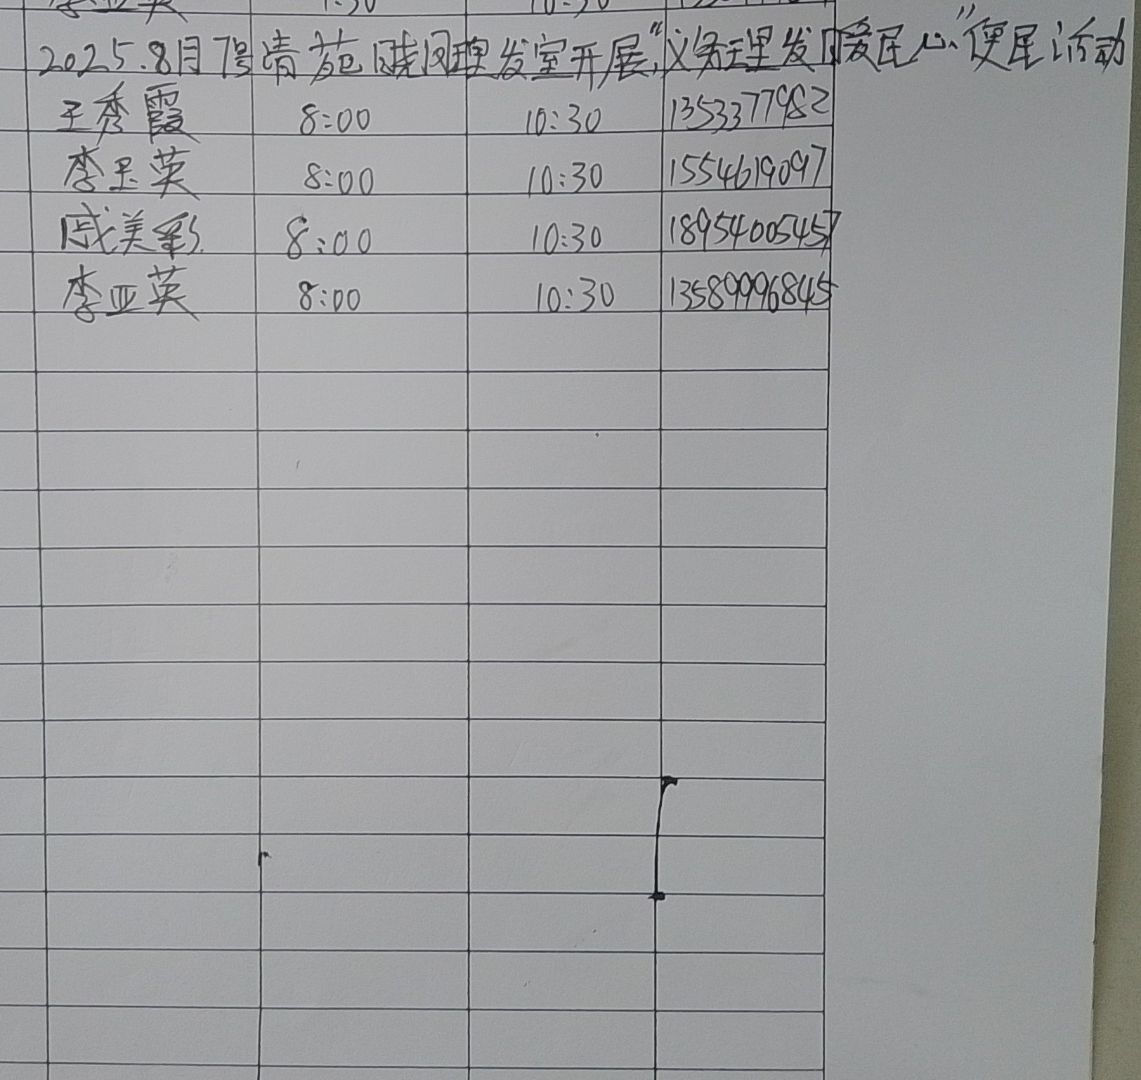 2025.8月7号清苑晓闵理发室开展“义务理发爱民心”便民活动
王秀霞 8:00 10:30 1353377982
李玉英 8:00 10:30 1554619097
戚美彩 8:00 10:30 18954005457
李亚英 8:00 10:30 13589996845